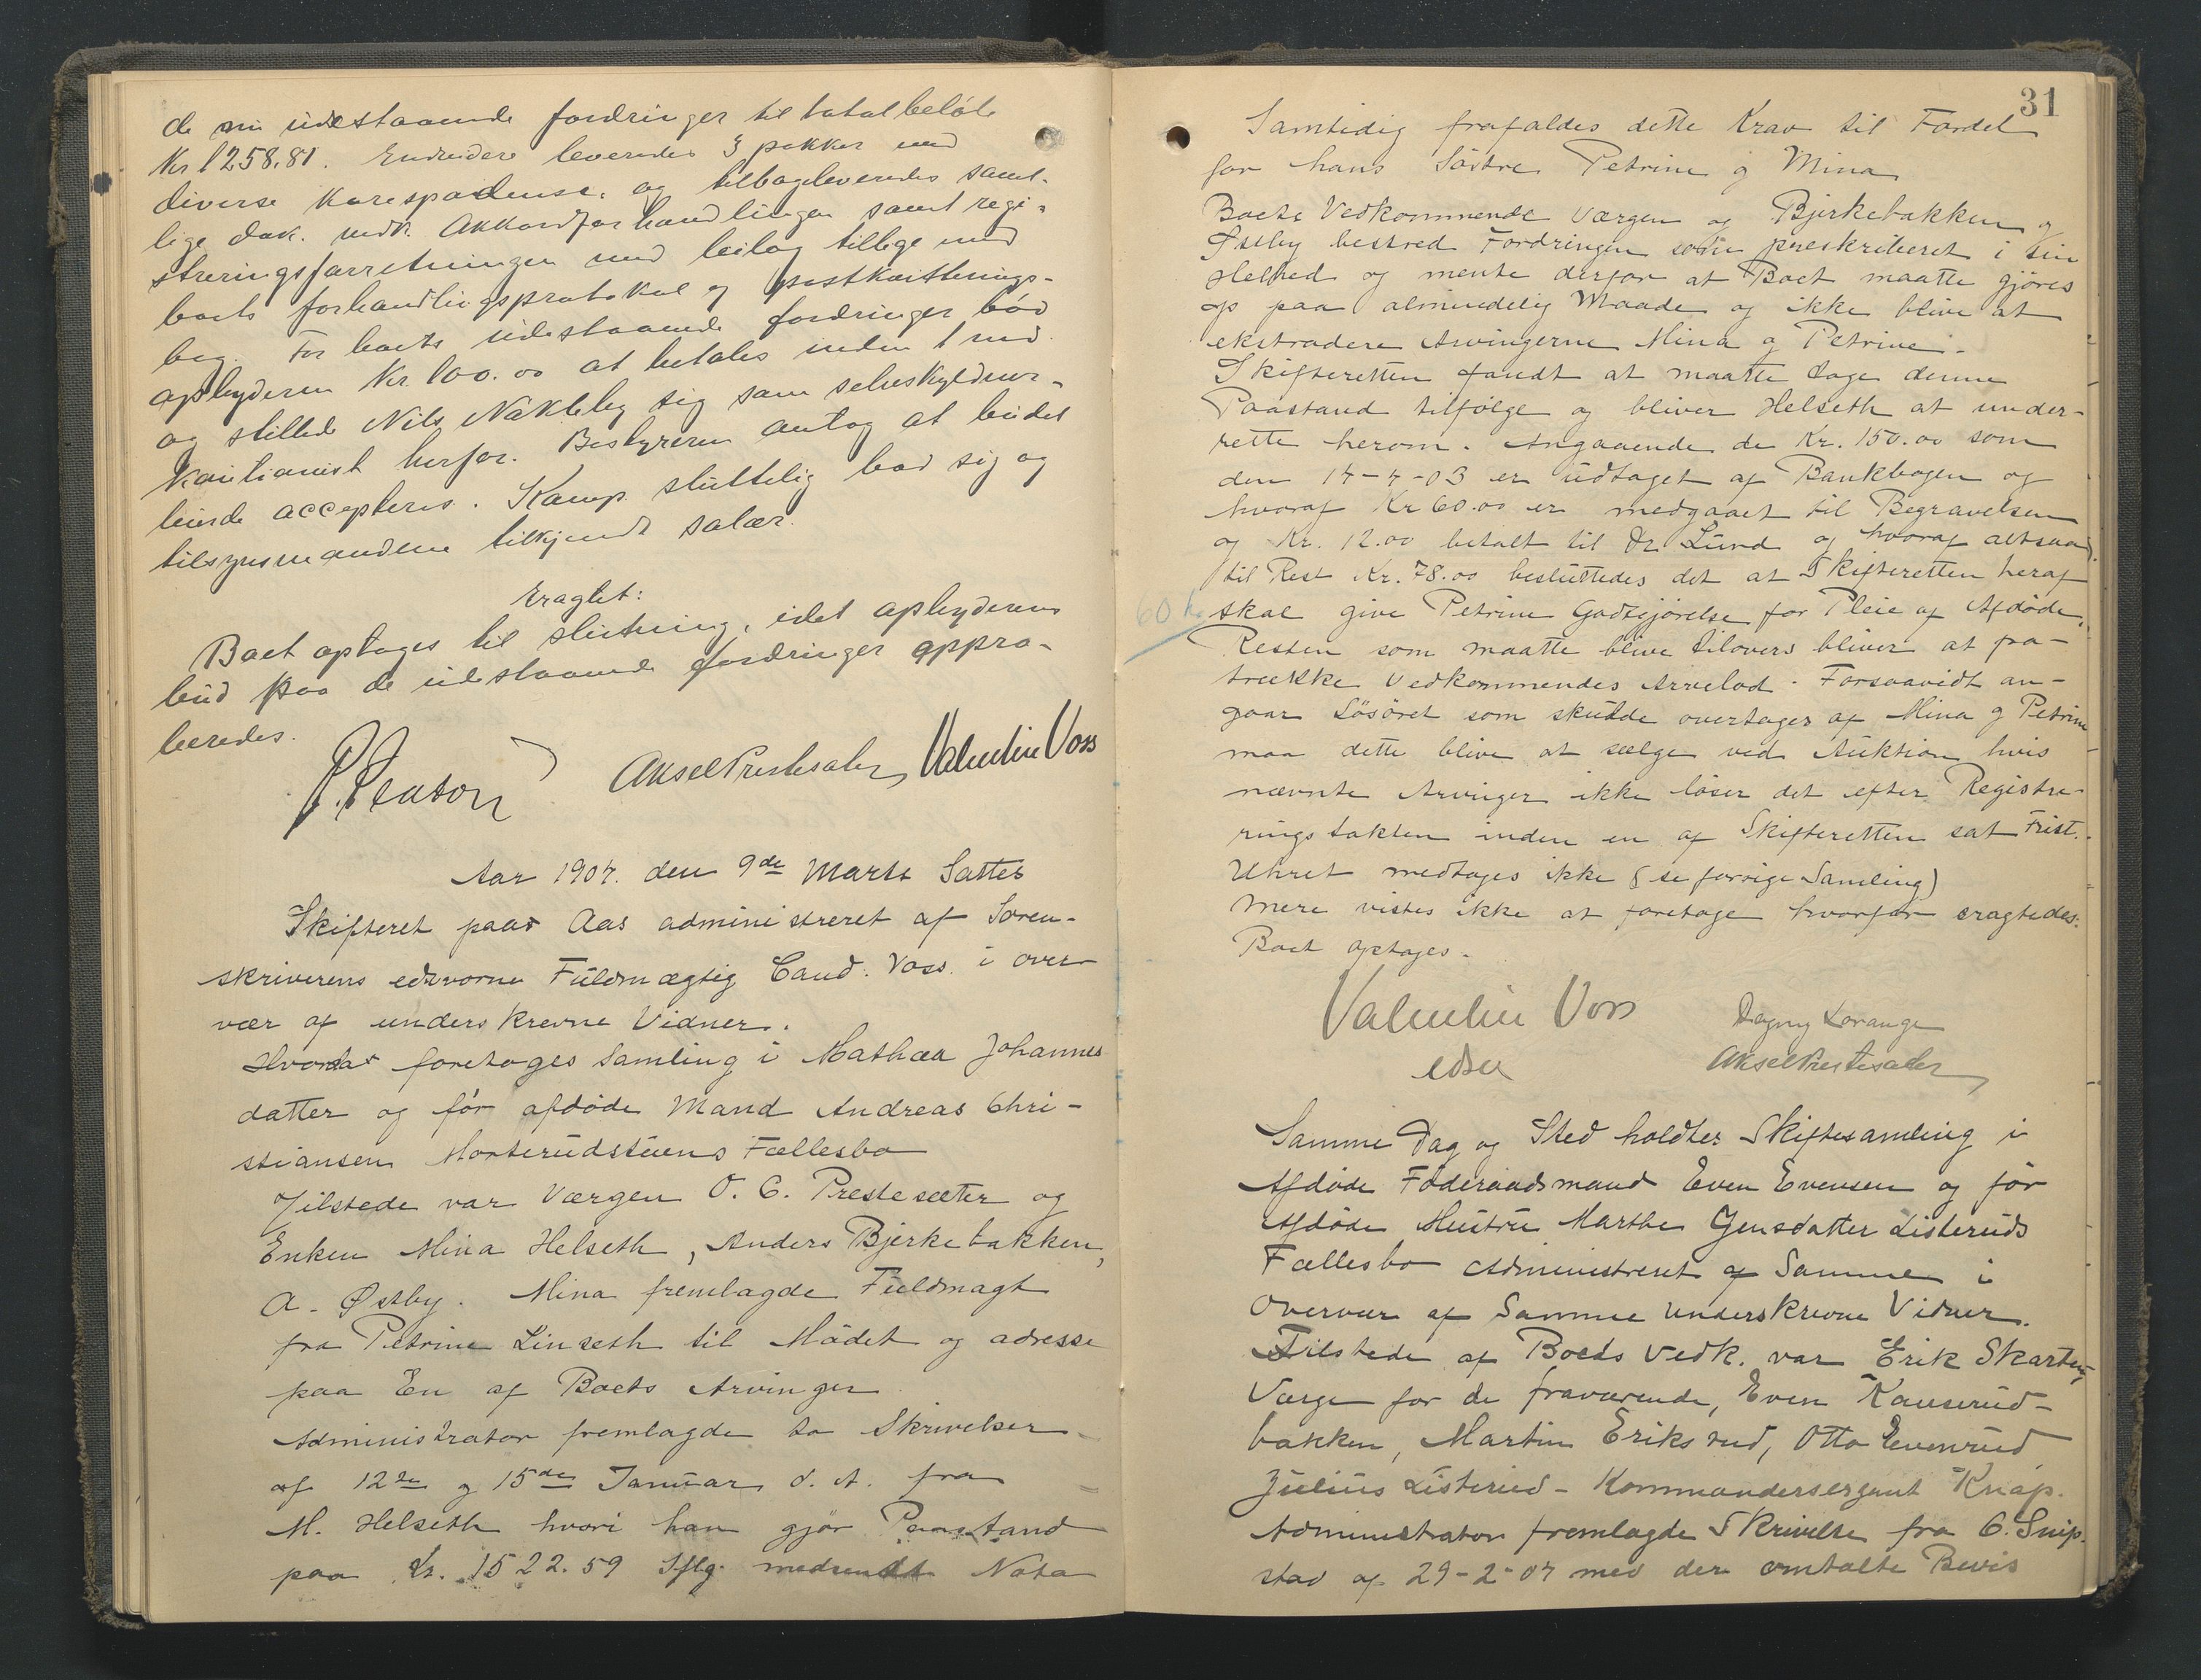 de nu udestaaende fordringer til totalbeløb
Kr 1258.81. Endvidere leveredes 3 pakker med
diverse korespodense, og tilbageleveredes samt-
lige dok. vedk. Akkordforhandlingen samt regi-
streringsforretningen med beilag tillige med
boets forhandlingsprotokol og postkvitterings-
bog. For boets udestaaende fordringer bød
opbyderen Kr. 100.00 at betales inden 1 md.
og stillede Nils Nakleby sig som selvskyldner-
kautionist herfor. Bestyreren antog at budet
burde accepteres. Kamp sluttelig bad sig og
tilsynsmændene tilkjendt salær.
Eragtet:
Boet optages til slutning, idet opbyderens
bud paa de udestaaende fordringer appro-
beredes.
Aksel Prestesæter Valentin Voss
Aar 1904. den 9de Marts Sattes
Skifteret paa Aas administreret af Soren-
skriverens edsvorne Fuldmægtig Cand. Voss i over-
vær af underskrevne Vidner.
Hvorda foretoges Samling i Mathea Johannes
datter og før afdøde Mand Andreas Chri-
stiansen Morterudstuens Fællesbo
Tilstede var Værgen O. C. Prestesæter og
Enken Mina Helseth, Anders Bjerkebakken,
A. Østby. Mina fremlagde Fuldmagt
fra Petrine Linseth til Mødet og adresse
paa En af Boets Arvinger
Administrator fremlagde to Skrivelser
af 12te og 15de Januar d. A. fra
M. Helseth hvori han gjør Paastand
paa Kr. 1522.59 Iflg. medsendt Nota
31
Samtidig frafaldes dette Krav til Fordel
for hans Søstre Petrine og Mina
Boets Vedkommende Værgen og Bjerkebakken og
Østby bestred Fordringen som preskriberet i sin
Helhed og mente derfor at Boet maatte gjøres
op paa almindelig Maade og ikke blive at
ekstradere Arvingerne Mina og Petrine.
Skifteretten fandt at maatte tage denne
Paastand tilfølge og bliver Helseth at under-
rette herom. Angaaende de Kr. 150.00 som
den 14-4-03 er udtaget af Bankbogen og
hvoraf Kr 60.00 er medgaaet til Begravelsen
og Kr. 12.00 betalt til Dr Lund og hvoraf altsaa
til Rest Kr. 78.00 besluttedes det at Skifteretten heraf
60 kr skal give Petrine Godtgjørelse for Pleie af Afdøde,
Resten som maatte blive tilovers bliver at fra-
trække Vedkommendes Arvelod. Forsaavidt an-
gaar Løsøret som skulde overtages af Mina og Petrine
maa dette blive at sælge ved Auktion hvis
nævnte Arvinger ikke løser det efter Registre-
ringstakten inden en af Skifteretten sat Frist.
Uhret medtages ikke (se forrige Samling)
Mere vistes ikke at foretage hvorfor eragtedes:
Boet optages.
Valentin Voss Dagny Lorange
edsv Aksel Prestesæter
Samme Dag og Sted holdtes Skiftesamling i
Afdøde Føderaadsmand Even Evensen og før
Afdøde Hustru Marthe Jensdatter Listeruds
Fællesbo Administreret af Samme i
Overvær af Samme underskrevne Vidner.
Tilstede af Boets Vedk. var Erik Skarten,
Værge for de fraværende, Even Kauserud-
bakken, Martin Eriksrud, Otto Evenrud
Julius Listerud - Kommandersergant Knap.
Administrator fremlagde Skrivelse fra C. Snip-
stad af 29-2-04 med der omtalte Bevis